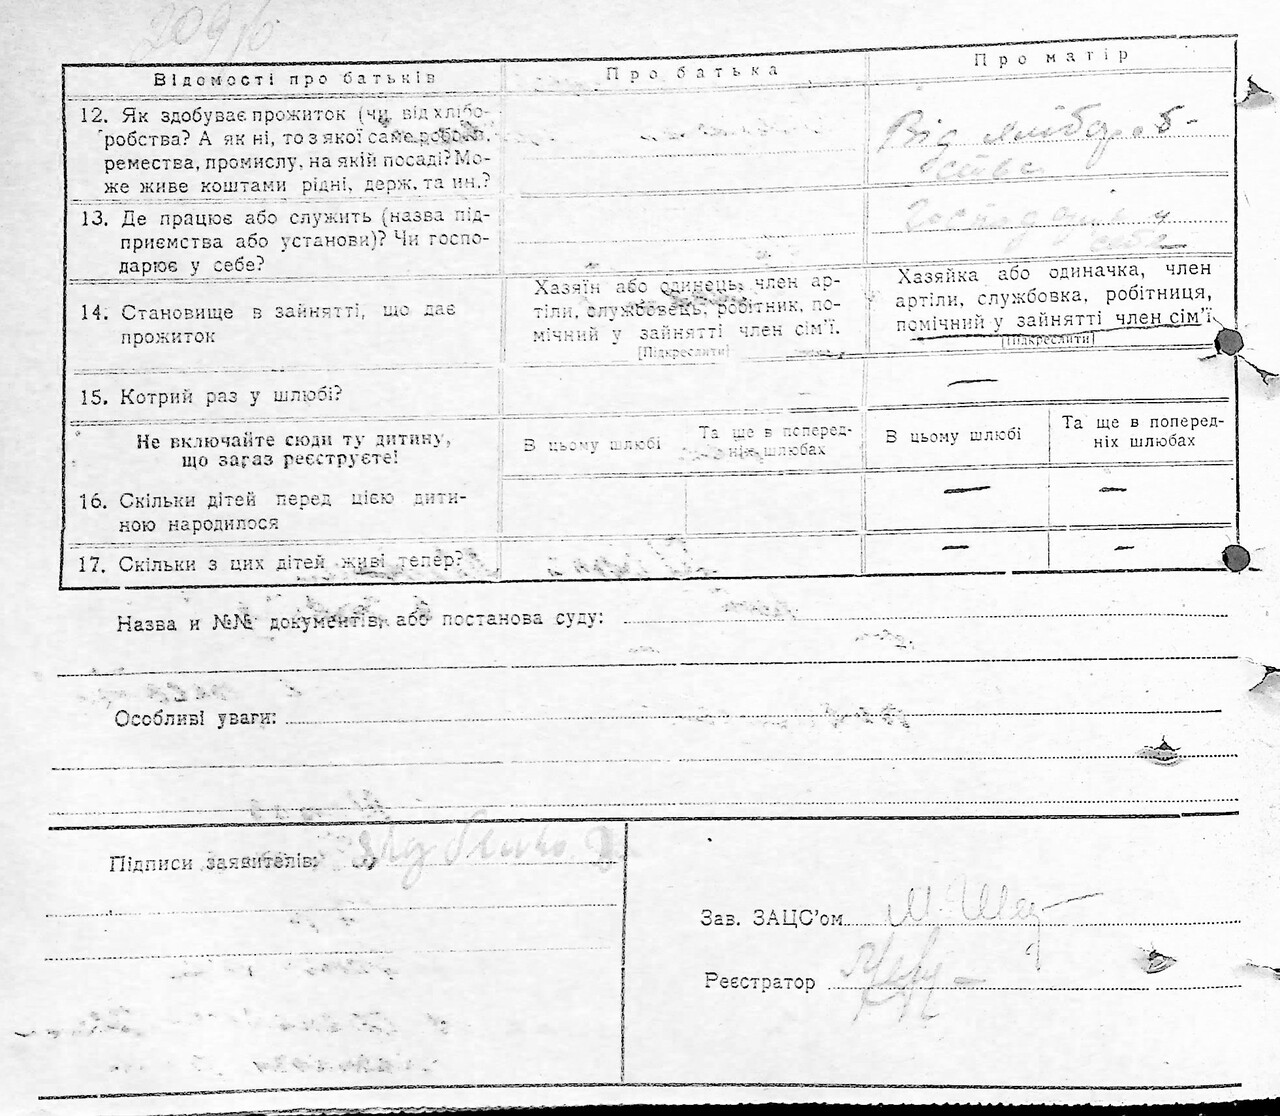 209
Відомості про батьків
Про батька
Про матір
12. Як здобуває прожиток (чи від хлібо-
робства? А як ні, то з якої саме роботи,
ремества, промислу, на якій посаді? Мо-
же живе коштами рідні, держ. та ин.?
Від хлібороб-
ства
13. Де працює або служить (назва під-
приємства або установи)? Чи госпо-
дарює у себе?
Господарів у
себе
14. Становище в зайнятті, що дає
прожиток
Хазяїн або одинець, член ар-
тіли, службовець, робітник, по-
мічний у зайнятті член сім'ї.
[Підкреслити]
Хазяйка або одиначка, член
артіли, службовка, робітниця,
помічний у зайнятті член сім'ї.
[Підкреслити]
15. Котрий раз у шлюбі?
—
Не включайте сюди ту дитину,
що зараз реєструєте!
В цьому шлюбі
Та ще в поперед-
ніх шлюбах
В цьому шлюбі
Та ще в поперед-
ніх шлюбах
16. Скільки дітей перед цією дити-
ною народилося
— —
17. Скільки з цих дітей живі тепер?
— —
Назва и №№ документів, або постанова суду:
Особливі уваги:
Підписи заявителів:
Зав. ЗАЦС'ом
Реєстратор